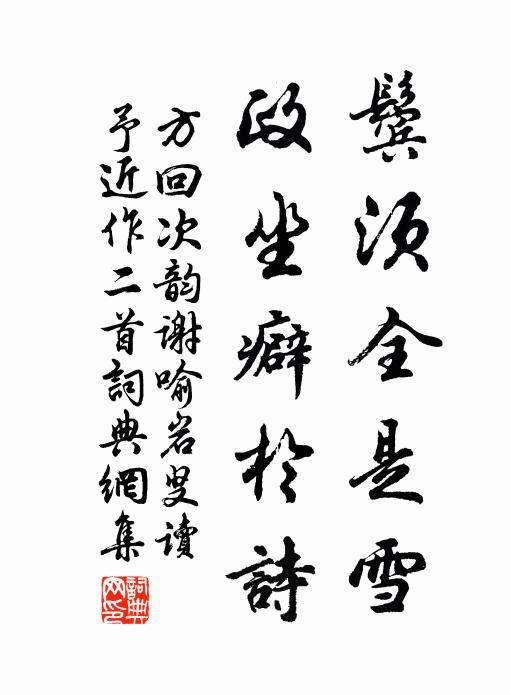 鬢須全是雪
政坐癖於詩
方回次韵謝喻岩叟读
予近作二首詞典網集
詞典网印